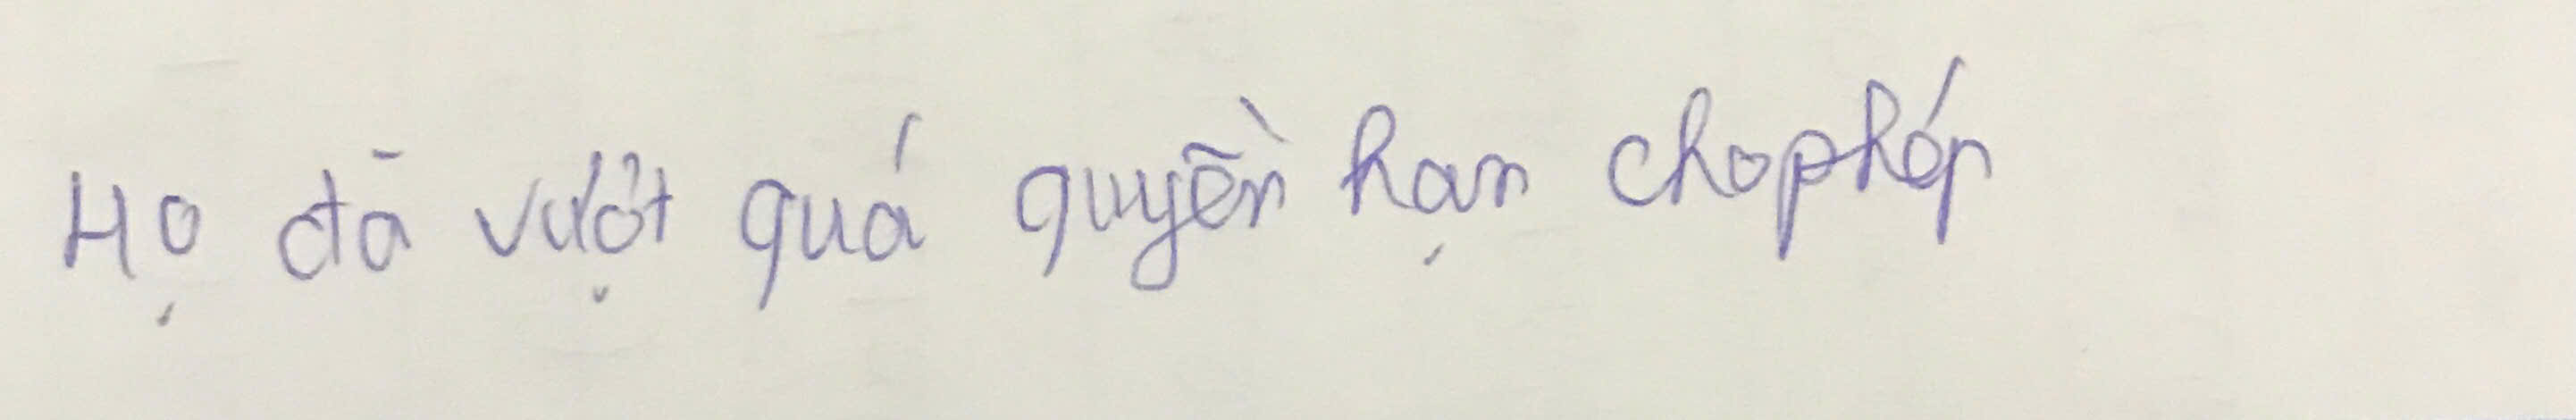 Họ đã vượt quá quyền hạn cho phép